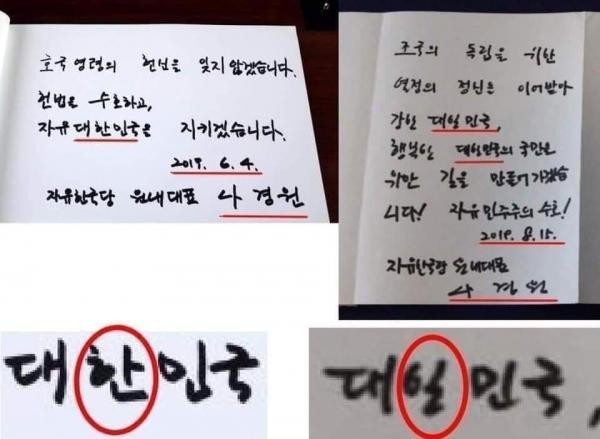 호국영령의 헌신을 잊지 않겠습니다.
헌법을 수호하고,
자유대한민국을 지키겠습니다.
2019. 6. 4.
자유한국당 원내대표 나경원
조국의 독립을 위한
열정의 정신을 이어받아
강한 대일민국,
행복한 대일민국의 국민을
위한 길을 만들어가겠습
니다! 자유민주주의 수호!
2019. 8. 15.
자유한국당 원내대표
나경원
대한민국
대일민국,